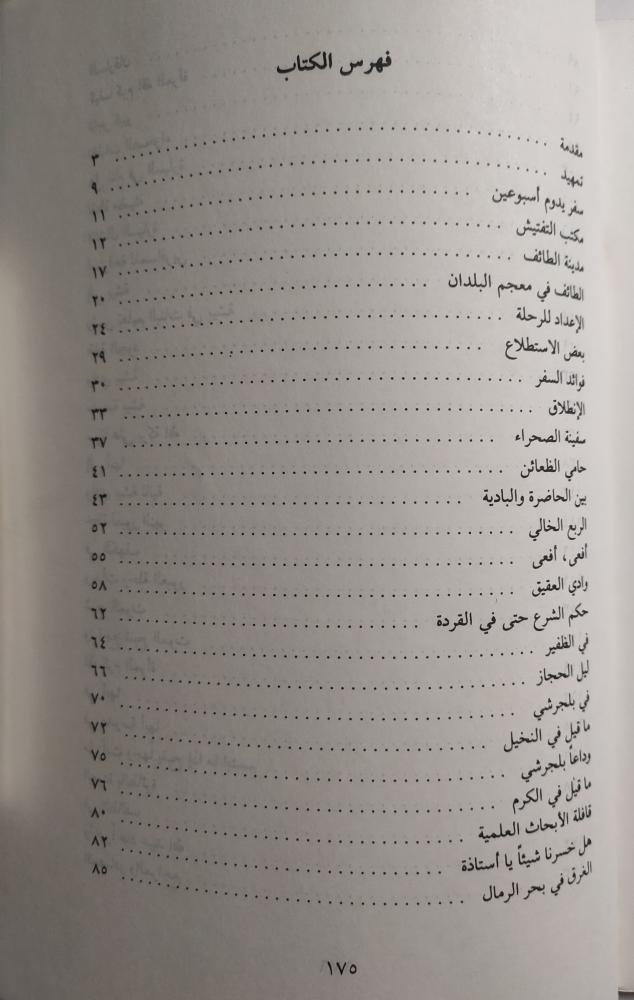 فهرس الكتاب
مقدمة ... ٣
تمهيد ... ٩
سفر يدوم أسبوعين ... ١١
مكتب التفتيش ... ١٢
مدينة الطائف ... ١٧
الطائف في معجم البلدان ... ٢٠
الإعداد للرحلة ... ٢٤
بعض الاستطلاع ... ٢٩
فوائد السفر ... ٣٠
الإنطلاق ... ٣٣
سفينة الصحراء ... ٣٧
حامي الظعائن ... ٤١
بين الحاضرة والبادية ... ٤٣
الربع الخالي ... ٥٢
أفعى، أفعى ... ٥٥
وادي العقيق ... ٥٨
حكم الشرع حتى في القردة ... ٦٢
في الظفير ... ٦٤
ليل الحجاز ... ٦٦
في بلجرشي ... ٧٠
ما قيل في النخيل ... ٧٢
وداعاً بلجرشي ... ٧٥
ما قيل في الكرم ... ٧٦
قافلة الأبحاث العلمية ... ٨٠
هل خسرنا شيئاً يا أستاذة ... ٨٢
الغرق في بحر الرمال ... ٨٥
١٧٥